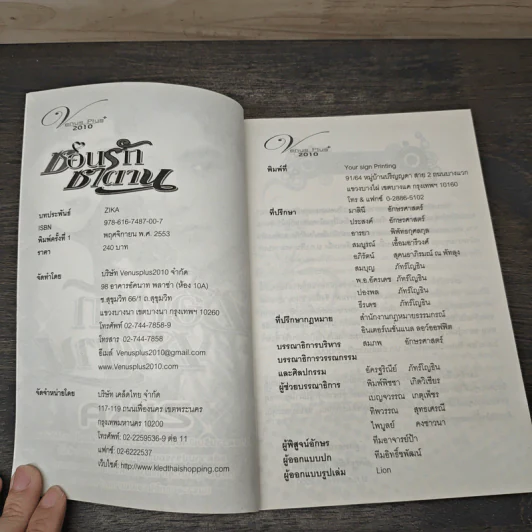 Venus Plus+
2010
ซ่อนรัก
ซาตาน
บทประพันธ์ ZIKA
ISBN 978-616-7487-00-7
พิมพ์ครั้งที่ 1 พฤศจิกายน พ.ศ. 2553
ราคา 240 บาท
จัดทำโดย บริษัท Venusplus2010 จำกัด
98 อาคารอัคนาท พลาซ่า (ห้อง 10A)
ซ.สุขุมวิท 66/1 ถ.สุขุมวิท
แขวงบางนา เขตบางนา กรุงเทพฯ 10260
โทรศัพท์ 02-744-7858-9
โทรสาร 02-744-7858
อีเมล์ Venusplus2010@gmail.com
www.Venusplus2010.com
จัดจำหน่ายโดย บริษัท เคล็ดไทย จำกัด
117-119 ถนนเฟื่องนคร เขตพระนคร
กรุงเทพมหานคร 10200
โทรศัพท์: 02-2259536-9 ต่อ 11
แฟกซ์: 02-6222537
เว็บไซต์: http://www.kledthaishopping.com
Venus Plus+
2010
พิมพ์ที่ Your sign Printing
91/64 หมู่บ้านปริญญดา สาย 2 ถนนบางแวก
แขวงบางไผ่ เขตบางแค กรุงเทพฯ 10160
โทร & แฟกซ์ 0-2886-5102
ที่ปรึกษา มาลินี อักษรศาสตร์
ประสงค์ อักษรศาสตร์
อารยา พิพัทธกุศลกุล
สมบูรณ์ เอื้อมอารีวงศ์
อภิรัตน์ ณ พัทลุง
สมบุญ ภัทร์โญชิน
พ.อ.อัครเดช ภัทร์โญชิน
ปองพล ภัทร์โญชิน
ธีรเดช ภัทร์โญชิน
ที่ปรึกษากฎหมาย สำนักงานกฎหมายธรรมกรณ์
อินเตอร์เนชั่นแนล ลอว์ออฟฟิต
บรรณาธิการบริหาร สมภพ อักษรศาสตร์
บรรณาธิการวรรณกรรม
และศิลปกรรม อัครฐริณีย์ ภัทร์โญชิน
ผู้ช่วยบรรณาธิการ พิมพ์พิชชา เกิดวิเชียร
เบญจวรรณ เกตุเพ็ชร
ทิพวรรณ สุทธเศรณี
ไพบูลย์ คงชาวนา
ผู้พิสูจน์อักษร ทีมอาจารย์ป้า
ผู้ออกแบบปก ทีมอิทธิ์ชพัฒน์
ผู้ออกแบบรูปเล่ม Lion